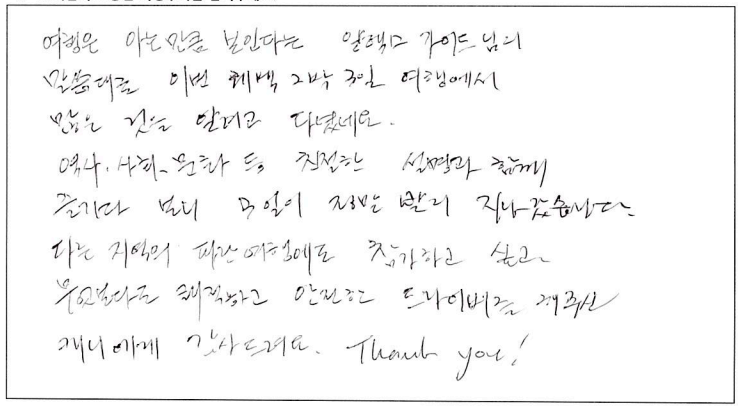 여행은 아는만큼 보인다는 알렉스 가이드님의
말씀대로 이번 퀘백 2박 3일 여행에서
많은 것을 알려고 다녔네요.
역사. 사회. 문화 등 친절한 설명과 함께
즐기다 보니 3일이 정말 빨리 지나갔습니다.
다른 지역의 파란여행에도 참가하고 싶고,
무엇보다도 쾌적하고 안전한 드라이버를 해주신
케니에게 감사드려요. Thank you!